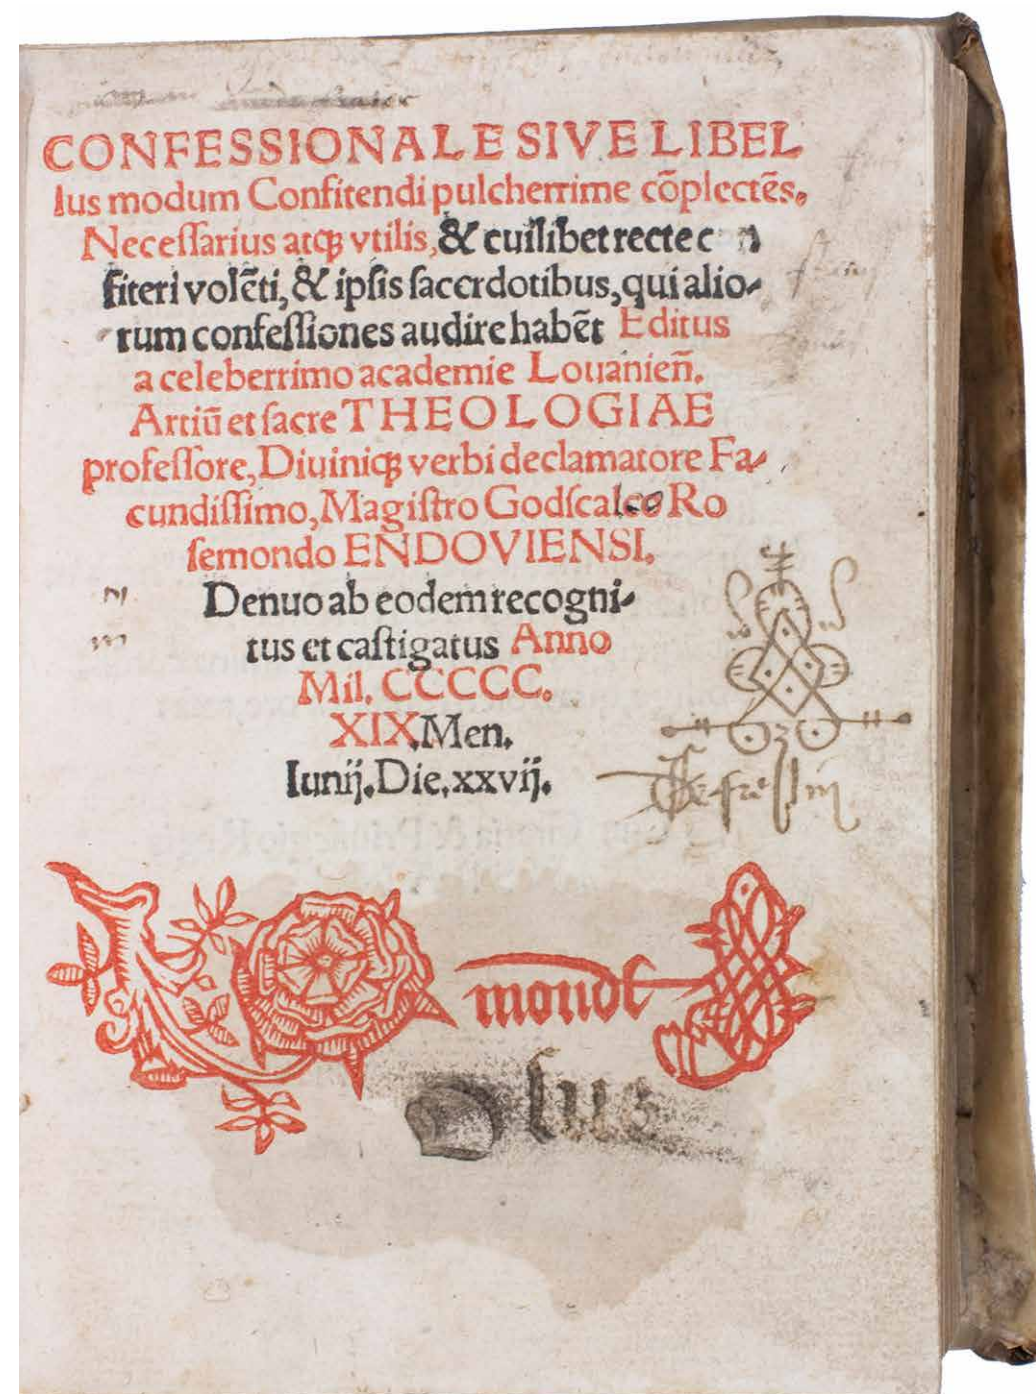 CONFESSIONALE SIVE LIBEL
lus modum Confitendi pulcherrime cōplectēs.
Necessarius atqꝫ vtilis, & cuilibet recte c n
fiteri volēti, & ipsis sacerdotibus, qui alio-
rum confessiones audire habēt Editus
a celeberrimo academie Louanien̄.
Artiū et sacre THEOLOGIAE
professore, Diuiniqꝫ verbi declamatore Fa-
cundissimo, Magistro Godscalco Ro
semondo ENDOVIENSI.
Denuo ab eodem recogni-
tus et castigatus Anno
Mil. CCCCC.
XIX. Men.
Iunij. Die. xxvij.
mondt